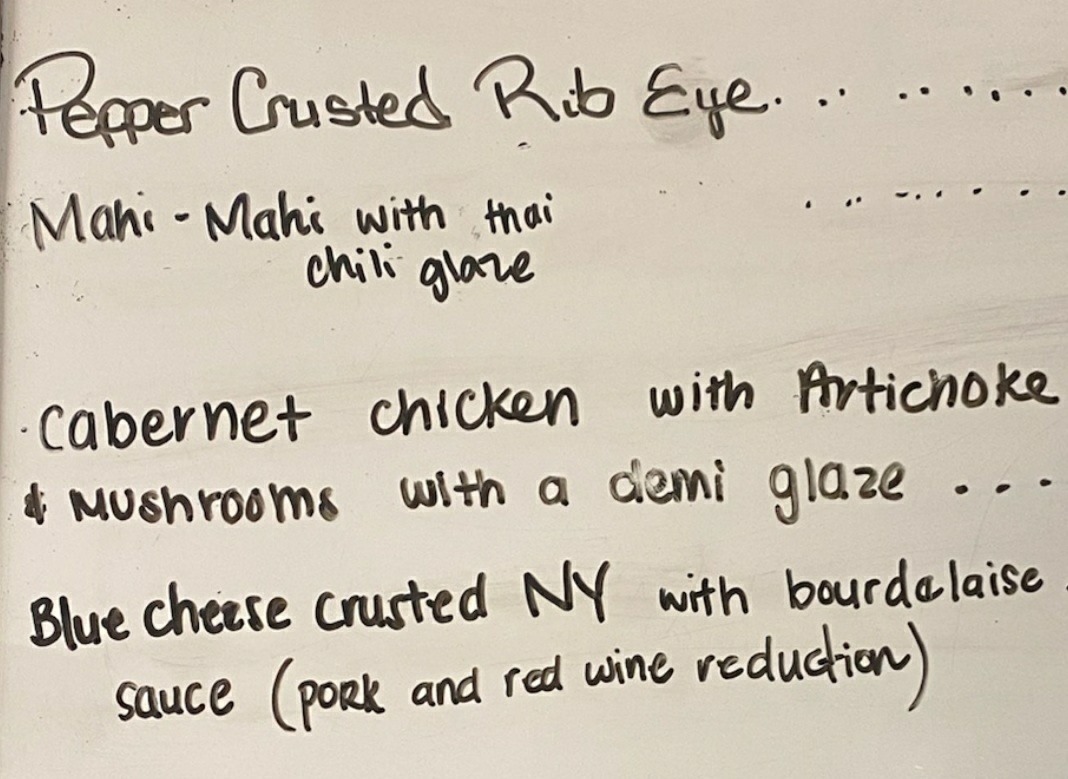 Pepper Crusted Rib Eye. .. .. .. . . . .
Mahi - Mahi with thai . .. - . . . . . .
chili glaze
. Cabernet chicken with Artichoke
& Mushrooms with a demi glaze . . .
Blue cheese crusted NY with bourdalaise .
sauce (pork and red wine reduction)